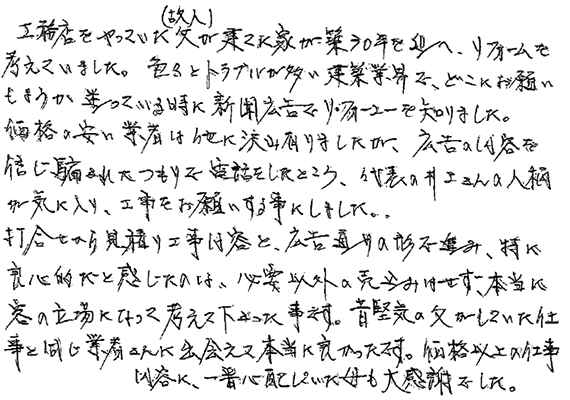 (故人)
工務店をやっていた父が建てた家が築30年を迎へ、リフォームを
考えていました。色々とトラブルが多い建築業界で、どこにお願い
しようか迷っている時に新聞広告でリフォーユーを知りました。
価格の安い業者は他に沢山有りましたが、広告の内容を
信じ騙されたつもりで電話をしたところ、代表の井上さんの人柄
が気に入り、工事をお願いする事にしました。
打合せから見積り工事内容と、広告通りの形で進み、特に
良心的だと感じたのは、必要以外の売込みはせず、本当に
客の立場になって考えて下さった事です。昔堅気の父がしていた仕
事と同じ業者さんに出会えて本当に良かったです。価格以上の仕事
内容に、一番心配していた母も大感謝でした。